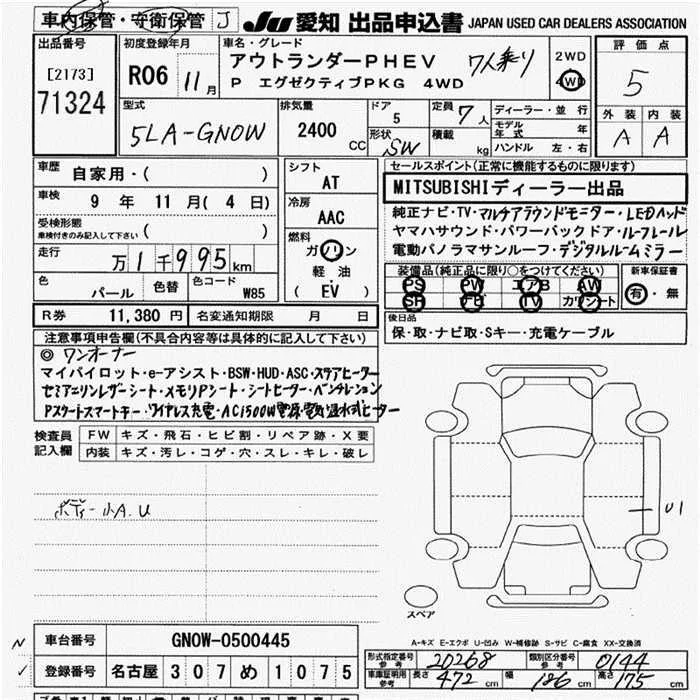 車内保管・安衛保管 J JU 愛知 出品申込書 JAPAN USED CAR DEALERS ASSOCIATION
出品番号 [2173] 71324
初度登録年月 R06 11月
車名・グレード アウトランダーPHEV 7人乗り
P エグゼクティブPKG 4WD
2WD 4WD
評価点 5
外装 A 内装 A
型式 5LA-GN0W
排気量 2400 CC
ドア 5
形状 SW
定員 7人
積載 kg
ディーラー・並行
モデル年式 年
ハンドル 左・右
車歴 自家用・( )
車検 9年 11月(4日)
受検形態 ( )
車検付きのみ記入して下さい
走行 万1千995km
色 パール 色替 色コード W85
シフト AT
冷房 AAC
燃料 ガソリン
軽油
(EV)
セールスポイント(正常に機能するものに限ります)
MITSUBISHIディーラー出品
純正ナビ・TV・マルチアラウンドモニター・LEDヘッド
ヤマハサウンド・パワーバックドア・ルーフレール
電動パノラマサンルーフ・デジタルルームミラー
装備品(純正品に限り○をつけてください)
PS PW エアB AW
SR ナビ TV カワシート
新車保証書 有・無
R券 11,380円 名変通知期限 月 日
後日品
保・取・ナビ取・Sキー・充電ケーブル
注意事項申告欄(不具合内容等は具体的に記入して下さい)
◎ ワンオーナー
マイパイロット・e-アシスト・BSW・HUD・ASC・ステアヒーター
セミアニリンレザーシート・メモリPシート・シートヒーター・ベンチレーション
Pスタートスマートキー・ワイヤレス充電・AC1500W電源・電気温水式ヒーター
検査員記入欄
FW キズ・飛石・ヒビ割・リペア跡・X要
内装 キズ・汚レ・コゲ・穴・スレ・キレ・破レ
ボディー小A.U
U1
スペア
A-キズ E-エクボ U-凹み W-補修跡 S-サビ C-腐食 XX-交換済
車台番号 GN0W-0500445
登録番号 名古屋 307 め 1075
形式指定番号 参考 20268 類別区分番号 参考 0144
車庫証明用 参考 長さ 472 cm 幅 186 cm 高さ 175 cm